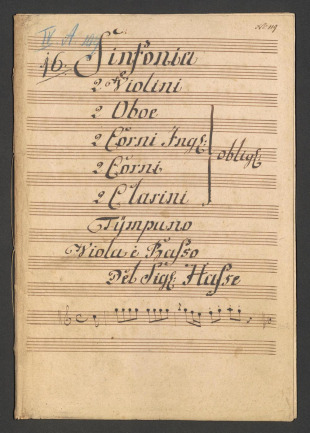 IV A 119
No: 119
16. Sinfonia
2 Violini
2 Oboe
2 Corni Ingl:
2 Corni
2 Clarini
obligl:
Tÿmpano
Viola è Basso
Del Sigl: Hasse